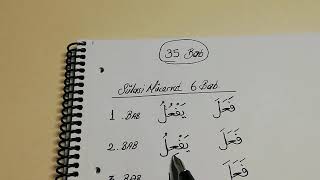 35 Bab
Sülasi Mücerred 6 Bab
1. BAB يَفْعُلُ فَعَلَ
2. BAB يَفْعِلُ فَعَلَ
3. BAB فَعَلَ